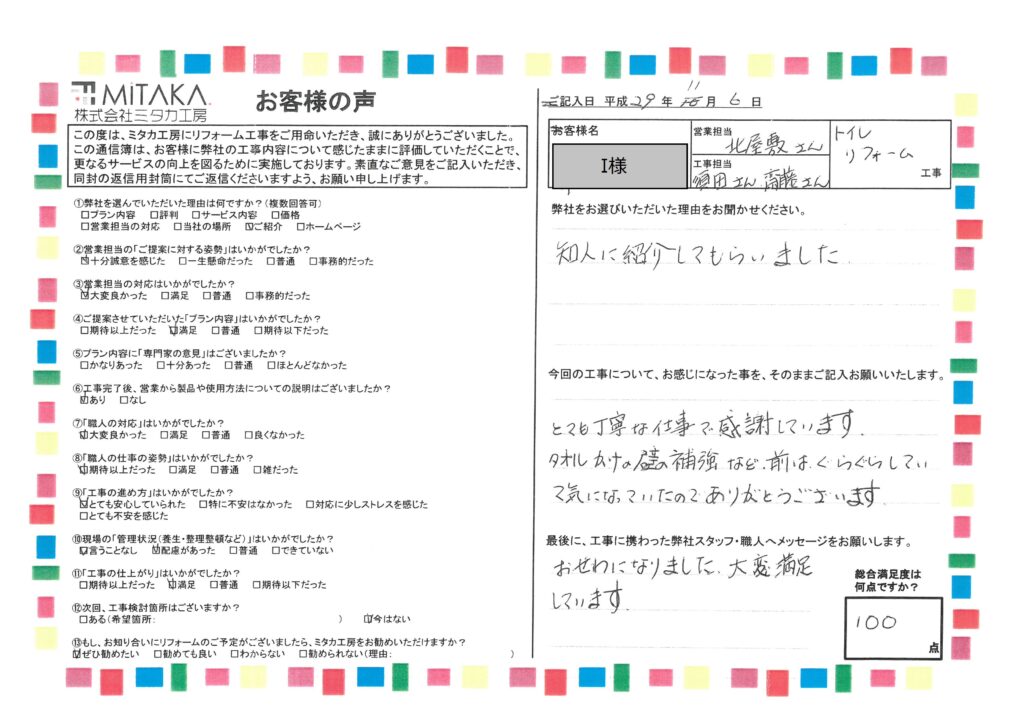 MiTAKA
株式会社ミタカ工房
お客様の声
この度は、ミタカ工房にリフォーム工事をご用命いただき、誠にありがとうございました。
この通信簿は、お客様に弊社の工事内容について感じたままに評価していただくことで、
更なるサービスの向上を図るために実施しております。素直なご意見をご記入いただき、
同封の返信用封筒にてご返信くださいますよう、お願い申し上げます。
①弊社を選んでいただいた理由は何ですか？(複数回答可)
□プラン内容 □評判 □サービス内容 □価格
□営業担当の対応 □当社の場所 ☑ご紹介 □ホームページ
②営業担当の「ご提案に対する姿勢」はいかがでしたか？
☑十分誠意を感じた □一生懸命だった □普通 □事務的だった
③営業担当の対応はいかがでしたか？
☑大変良かった □満足 □普通 □事務的だった
④ご提案させていただいた「プラン内容」はいかがでしたか？
□期待以上だった ☑満足 □普通 □期待以下だった
⑤プラン内容に「専門家の意見」はございましたか？
□かなりあった □十分あった □普通 □ほとんどなかった
⑥工事完了後、営業から製品や使用方法についての説明はございましたか？
☑あり □なし
⑦「職人の対応」はいかがでしたか？
☑大変良かった □満足 □普通 □良くなかった
⑧「職人の仕事の姿勢」はいかがでしたか？
☑期待以上だった □満足 □普通 □雑だった
⑨「工事の進め方」はいかがでしたか？
☑とても安心していられた □特に不安はなかった □対応に少しストレスを感じた
□とても不安を感じた
⑩現場の「管理状況(養生・整理整頓など)」はいかがでしたか？
☑言うことなし ☑配慮があった □普通 □できていない
⑪「工事の仕上がり」はいかがでしたか？
□期待以上だった ☑満足 □普通 □期待以下だった
⑫次回、工事検討箇所はございますか？
□ある(希望箇所: ) ☑今はない
⑬もし、お知り合いにリフォームのご予定がございましたら、ミタカ工房をお勧めいただけますか？
☑ぜひ勧めたい □勧めても良い □わからない □勧められない(理由: )
ご記入日 平成29年 11月 6日
お客様名
I様
営業担当
北屋敷さん
工事担当
須田さん 斎藤さん
トイレ
リフォーム
工事
弊社をお選びいただいた理由をお聞かせください。
知人に紹介してもらいました
今回の工事について、お感じになった事を、そのままご記入お願いいたします。
とても丁寧な仕事で感謝しています。
タオルかけの壁の補強など、前は、ぐらぐらしてい
て気になっていたのでありがとうございます。
最後に、工事に携わった弊社スタッフ・職人へメッセージをお願いします。
おせわになりました。大変満足
しています。
総合満足度は
何点ですか？
100
点